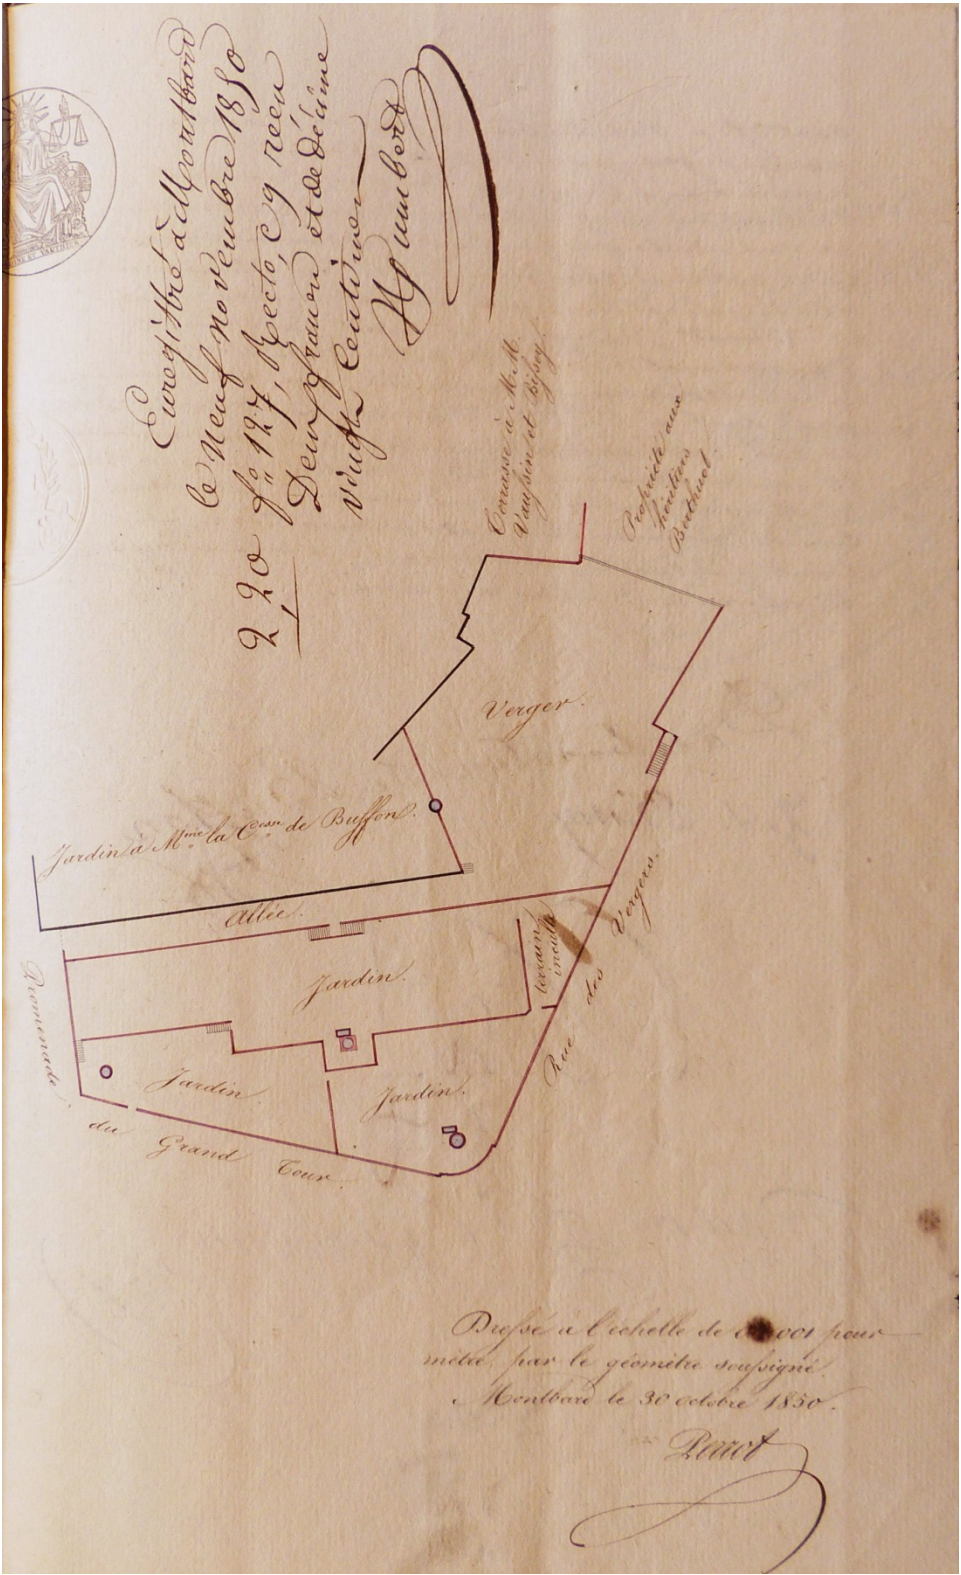 Enregistré à Montbard
le neuf novembre 1850
fo 127, Recto, C 9 reçu
Deux francs et de décime
vingt centimes
Humbert
2,20
Terrasse à M.M.
Vaussin et
Propriété aux
héritiers
Berthuot.
Verger.
Jardin à Mme la Cesse de Buffon.
Allée.
Jardin.
terrain
inculte
Rue des Vergers.
Jardin.
Jardin.
Promenade
du Grand Tour.
Dressé à l'échelle de 001 pour
mètre, par le géomètre soussigné.
Montbard le 30 octobre 1850.
Perrot